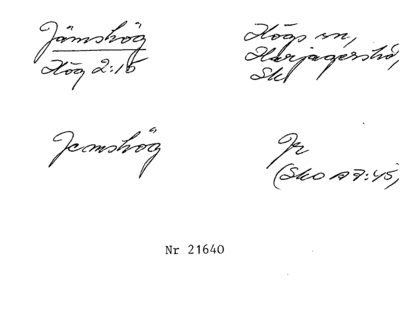 Jämshög
Hög 2:15
Högs sn,
Harjagers hd,
Sk
Jemshög
Jr
(SkO A 7:45)
Nr 21640